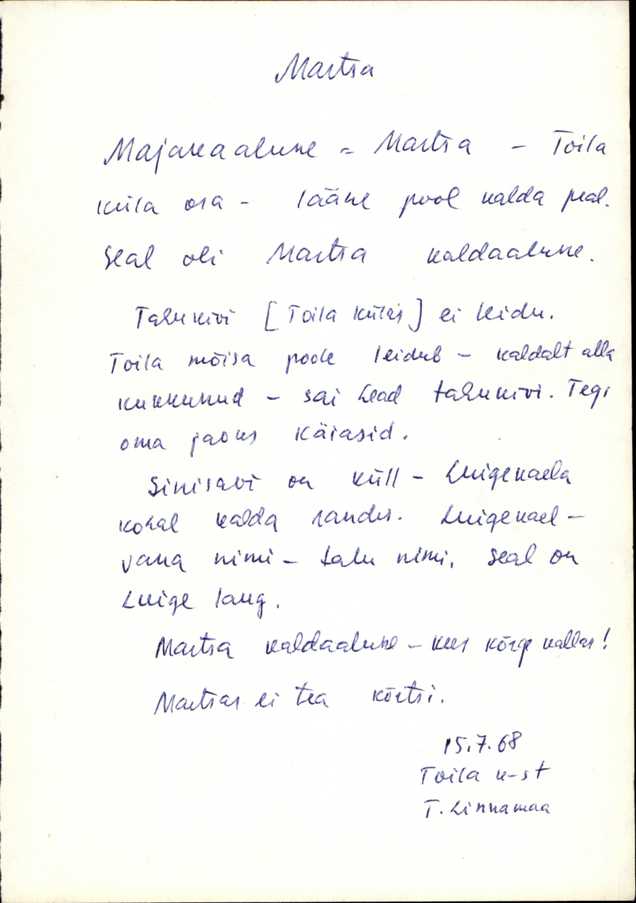 Martsa
Majakaalune = Martsa - Toila
küla osa - lääne pool kalda peal.
Seal oli Martsa kaldaalune.
Tahukivi [Toila külas] ei leidu.
Toila mõisa poole leidub - kaldalt alla
kukkunud - sai head tahukivi. Tegi
oma jaoks käiasid.
Sinisavi on küll - Luigekaela
kohal kalda randus. Luigekael -
vana nimi - talu nimi, seal on
Luige lang.
Martsa kaldaaluse - kus kõrge kallas!
Martsas ei tea kõrtsi.
15.7.68
Toila k-st
T. Linnamaa